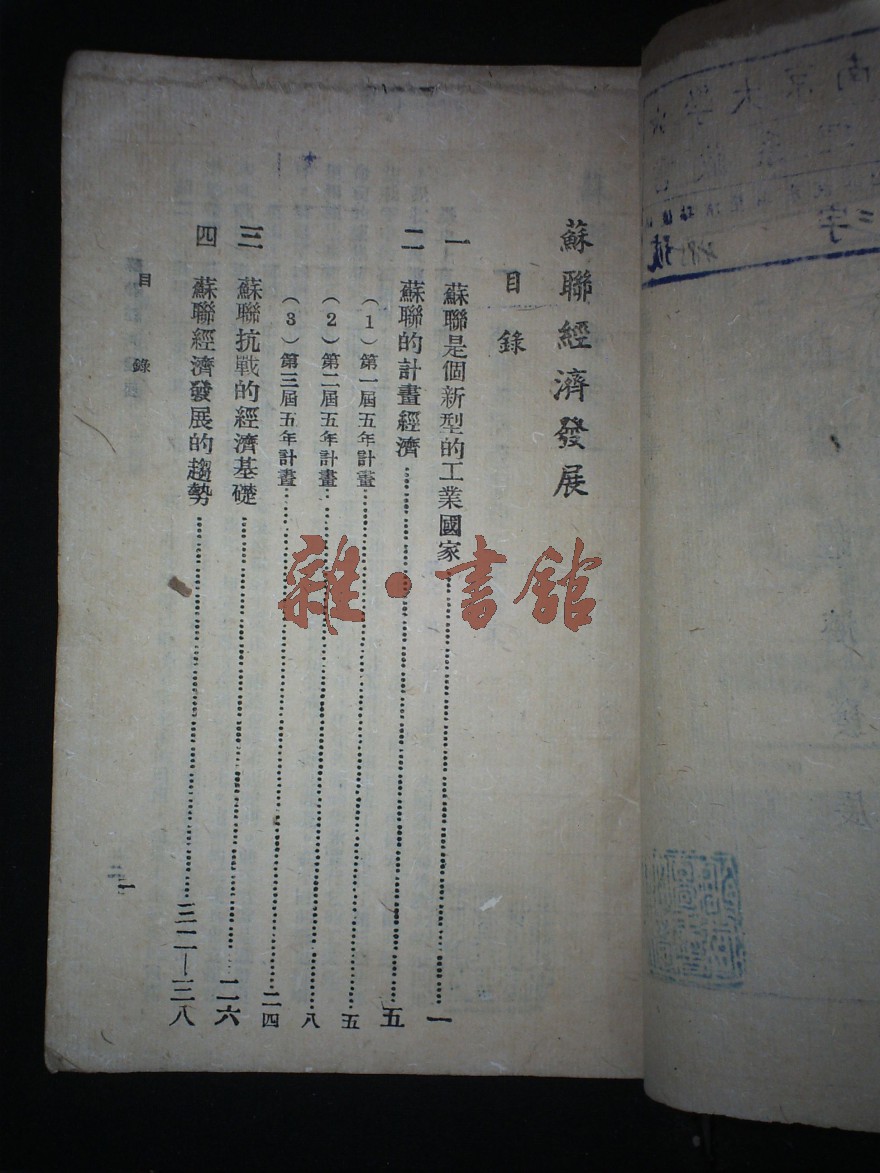 蘇聯經濟發展
目錄
一 蘇聯是個新型的工業國家……一
二 蘇聯的計畫經濟……五
（1）第一屆五年計畫……五
（2）第二屆五年計畫……八
（3）第三屆五年計畫……二四
三 蘇聯抗戰的經濟基礎……二六
四 蘇聯經濟發展的趨勢……三二—三八
目錄
一
雜·書館